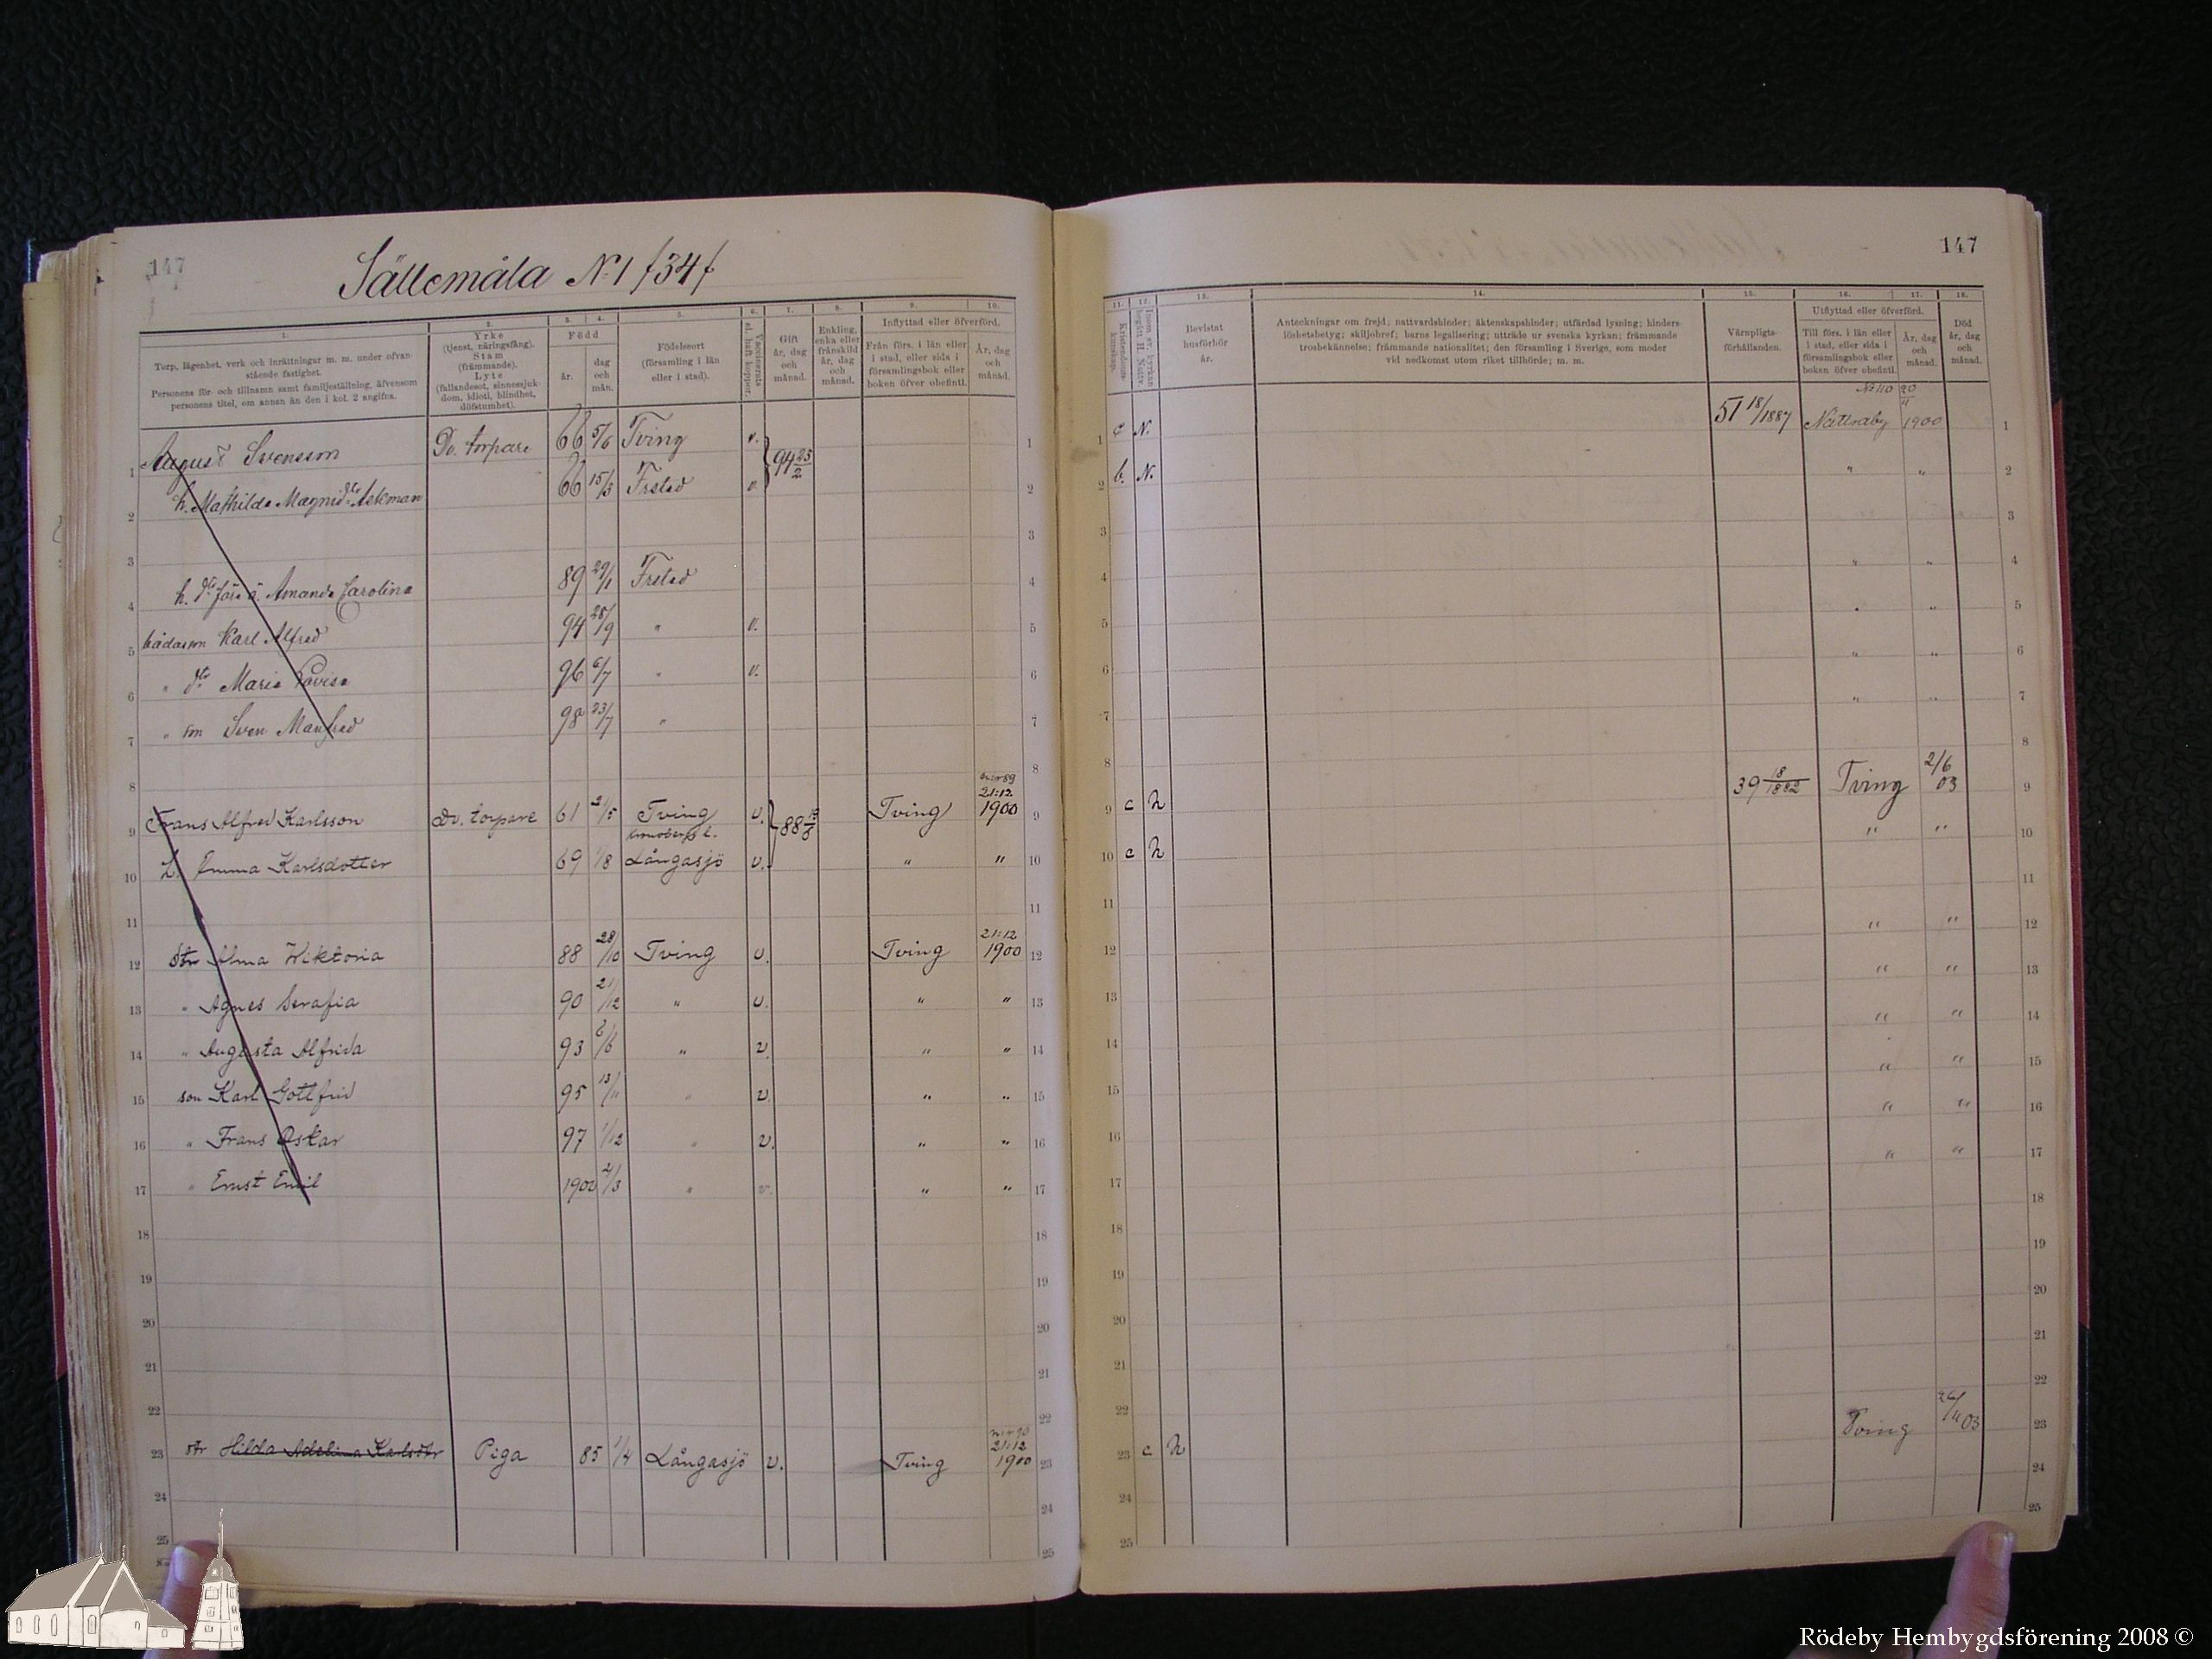 147
Sällemåla No 1 /34/
1. 2. 3. 4. 5. 6. 7. 8. 9. 10.
Torp, lägenhet, verk och inrättningar m. m. under ofvanstående fastighet.
Personens för- och tillnamn samt familjeställning, äfvensom personens titel, om annan än den i kol. 2 angifna.
Yrke
(tjenst, näringsfång).
Stam
(främmande).
Lyte
(fallandesot, sinnessjukdom, idioti, blindhet, döfstumhet).
Född
år.
dag och mån.
Födelseort
(församling i län eller i stad).
Vaccinerats el. haft koppor.
Gift
år, dag och månad.
Enkling, enka eller frånskild
år, dag och månad.
Inflyttad eller öfverförd.
Från förs. i län eller i stad, eller sida i församlingsbok eller boken öfver obefintl.
År, dag och månad.
1 August Svensson Dv. torpare 66 5/6 Tving v. 94 25/2 1
2 h. Mathilda Magnidtr Askman 66 15/3 Frstad v. 2
3 3
4 h. dtr före ä. Amanda Carolina 89 29/1 Frstad 4
5 bådas son Karl Alfred 94 28/9 " v. 5
6 " dtr Maria Lovisa 96 6/7 " v. 6
7 " son Sven Manfred 98 23/7 " 7
8 8
9 Frans Alfred Karlsson Dv. torpare 61 21/5 Tving v. 88 Tving 21:12 1900 9
Kronobergs l.
10 h. Emma Karlsdotter 69 /8 Långasjö v. " " 10
11 11
12 dtr Alma Wiktoria 88 28/10 Tving v. Tving 21:12 1900 12
13 " Agnes Serafia 90 21/12 " v. " " 13
14 " Augusta Alfrida 93 /6 " v. " " 14
15 son Karl Gottfrid 95 13/11 " v. " " 15
16 " Frans Oskar 97 1/12 " v. " " 16
17 " Ernst Emil 1900 2/3 " v. " " 17
18 18
19 19
20 20
21 21
22 22
23 dtr Hilda Adelina Karlsdtr Piga 85 1/4 Långasjö v. Tving 21:12 1900 23
24 24
25 25
147
11. 12. 13. 14. 15. 16. 17. 18.
Kristendomskunskap.
Bevistat husförhör
år.
Anteckningar om frejd; nattvardshinder; äktenskapshinder; utfärdad lysning; hinderslöshetsbetyg; skiljobref; barns legalisering; utträde ur svenska kyrkan; främmande trosbekännelse; främmande nationalitet; den församling i Sverige, som moder vid nedkomst utom riket tillhörde; m. m.
Värnpligtsförhållanden.
Utflyttad eller öfverförd.
Till förs. i län eller i stad, eller sida i församlingsbok eller boken öfver obefintl.
År, dag och månad.
Död
år, dag och månad.
1 c N. 51 18/1887 No 110 Nättraby 20/11 1900 1
2 b. N. " " 2
3 3
4 " " 4
5 " " 5
6 " " 6
7 " " 7
8 8
9 c n 39 18/1882 Tving 2/6 03 9
10 c n " " 10
11 11
12 " " 12
13 " " 13
14 " " 14
15 " " 15
16 " " 16
17 " " 17
18 18
19 19
20 20
21 21
22 22
23 c n Tving 24/11 03 23
24 24
25 25
Rödeby Hembygdsförening 2008 ©